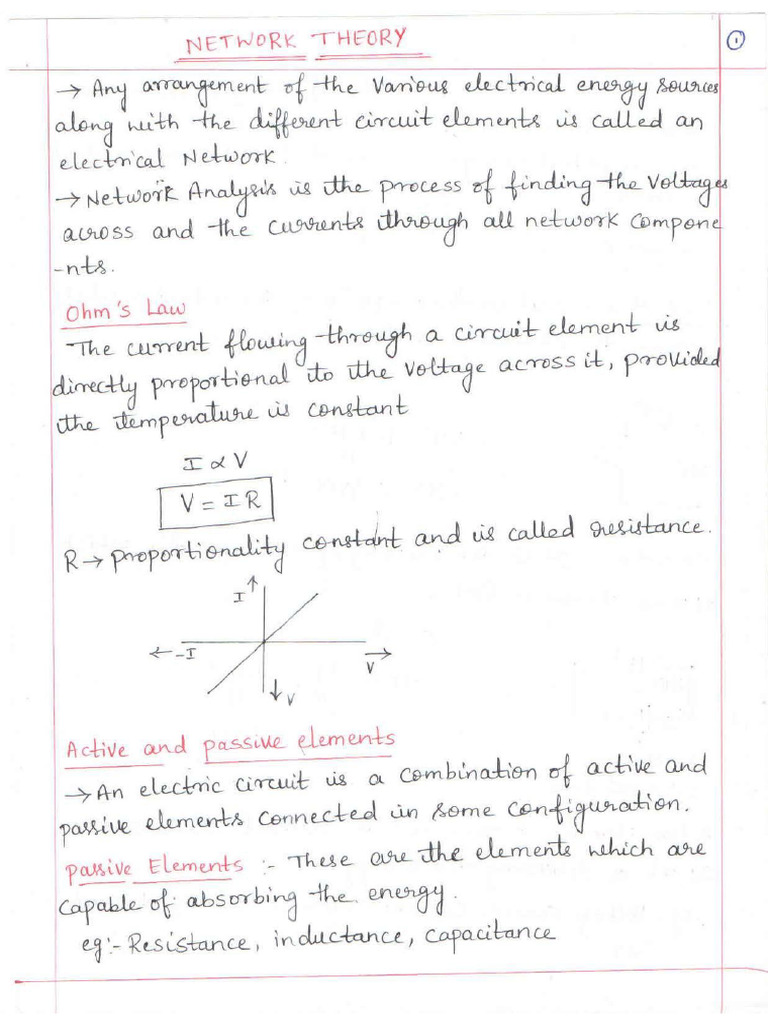 NETWORK THEORY
①
→ Any arrangement of the various electrical energy sources
along with the different circuit elements is called an
electrical Network.
→ Network Analysis is the process of finding the voltages
across and the currents through all network compone
-nts.
Ohm's Law
The current flowing through a circuit element is
directly proportional to the voltage across it, provided
the temperature is constant
I ∝ V
V = IR
R → proportionality constant and is called resistance.
I ↑
← -I
→ V
↓ V
Active and passive elements
→ An electric circuit is a combination of active and
passive elements connected in some configuration.
Passive Elements :- These are the elements which are
capable of absorbing the energy.
eg:- Resistance, inductance, capacitance